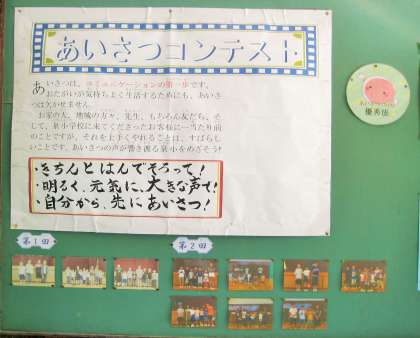 あいさつコンテスト
あいさつは、コミュニケーションの第一歩です。
おたがいが気持ちよく生活するためにも、あいさ
つは欠かせません。
お家の人、地域の方々、先生、もちろん友だち、そ
して、泉小学校に来てくださったお客様に…当たり前
のことですが、それを上手くやれることは、すばらし
いことです。あいさつの声が響き渡る泉小をめざそう!
・きちんとはんでそろって!
・明るく、元気に、大きな声で!
・自分から、先にあいさつ!
優秀班
第1回
第2回